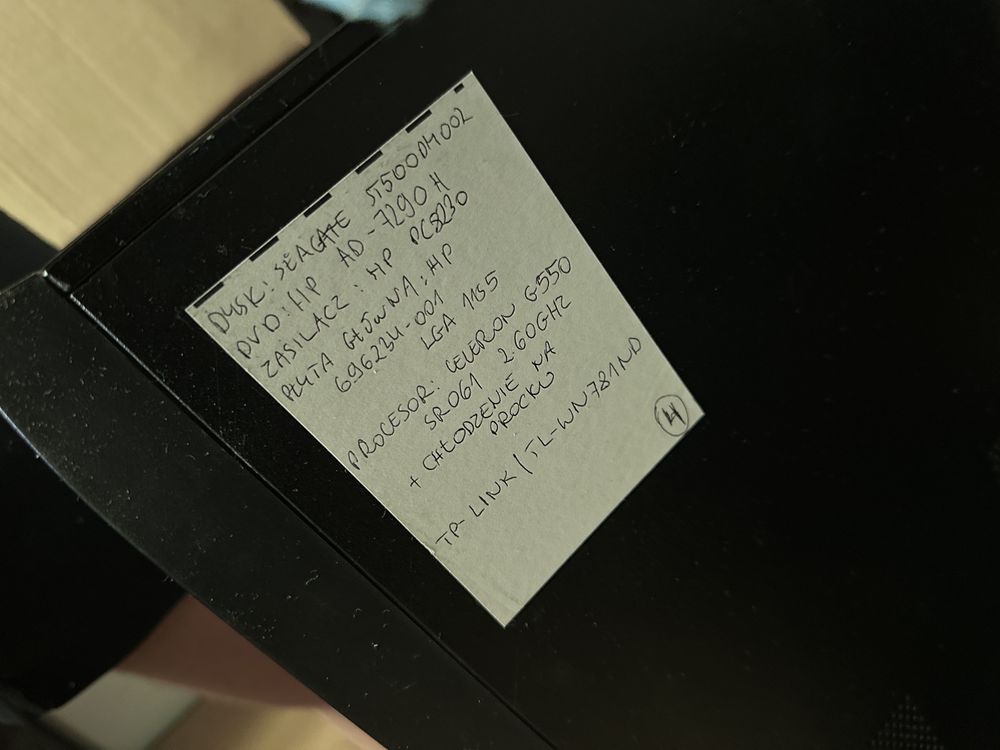 DYSK: SEAGATE ST500DM002
DVD: HP AD-7290H
ZASILACZ: HP PC8230
PŁYTA GŁÓWNA: HP
696234-001
LGA 1155
PROCESOR: CELERON G550
SR061 2.60GHZ
+ CHŁODZENIE NA
PROCKU
TP-LINK / TL-WN781ND
4